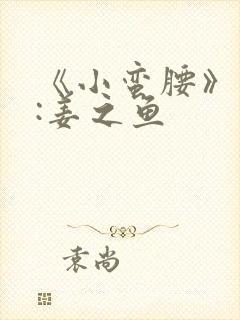 《小蛮腰》
:姜之鱼
袁尚